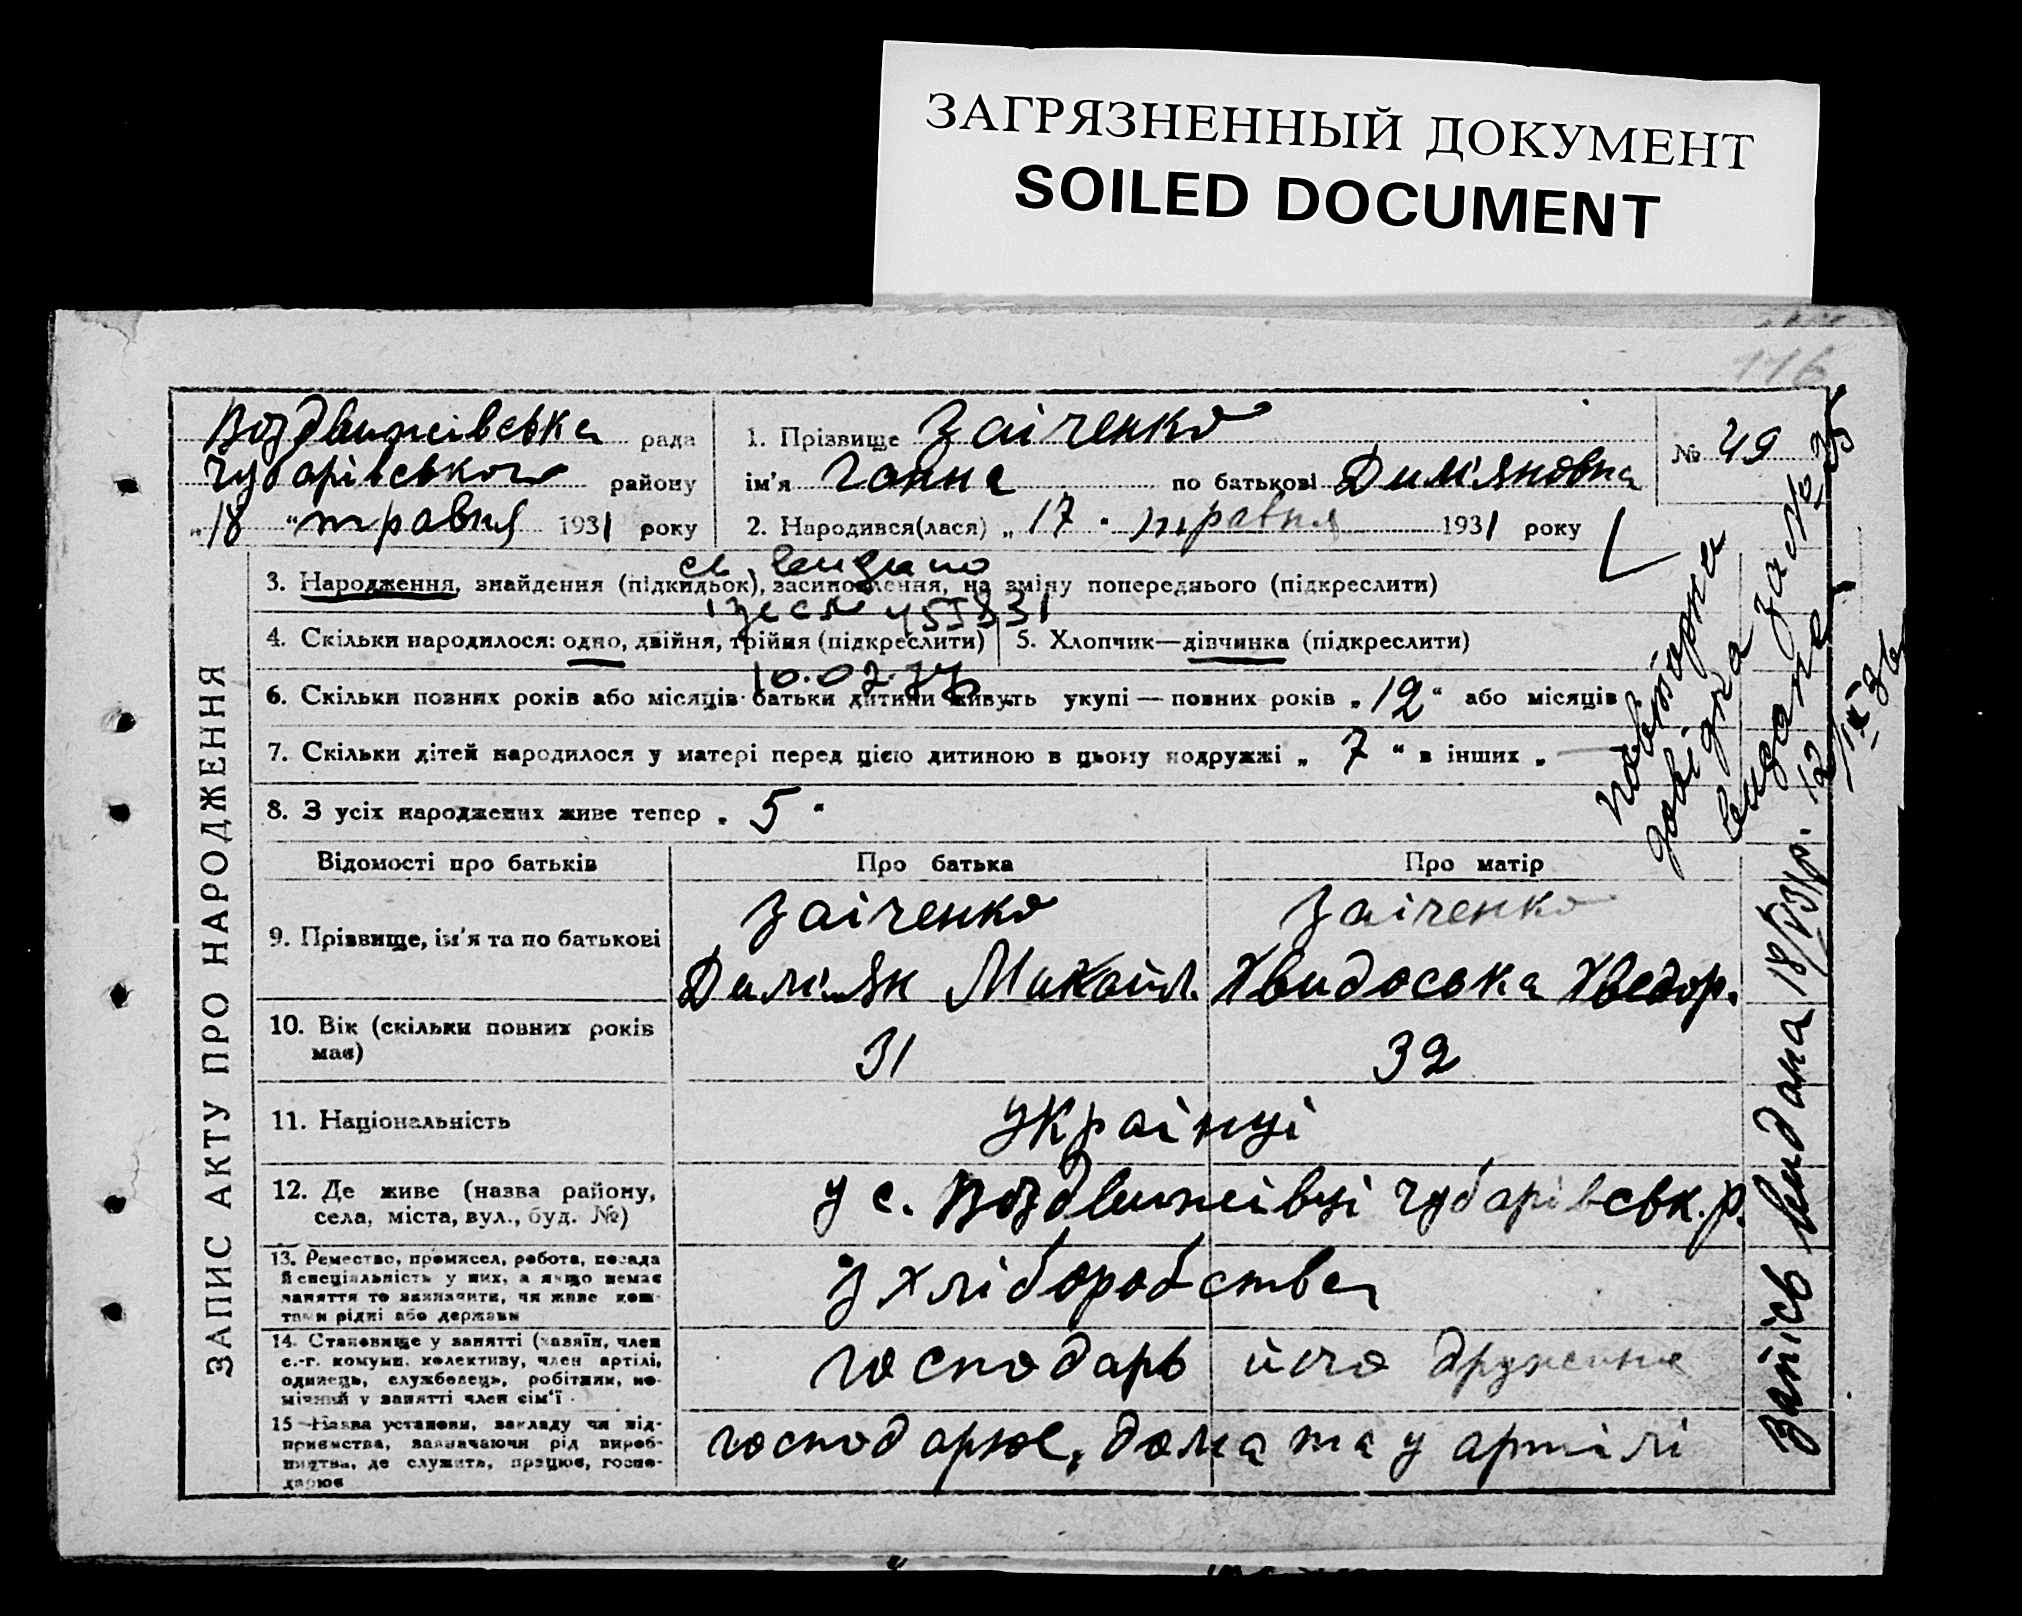 ЗАГРЯЗНЕННЫЙ ДОКУМЕНТ
SOILED DOCUMENT
116
ЗАПИС АКТУ ПРО НАРОДЖЕННЯ
Воздвижківська рада
Чубарівського району
„18 “ травня 1931 року
1. Прізвище Заіченко
ім'я Ганна по батькові Дим'яновна
2. Народився(лася) „ 17 " травня 1931 року
№ 49
3. Народження, знайдення (підкидьок), засиновлення, на зміну попереднього (підкреслити)
св. видано
455831
4. Скільки народилося: одно, двійня, трійня (підкреслити) 5. Хлопчик—дівчинка (підкреслити)
10.02.77
6. Скільки повних років або місяців батьки дитини живуть укупі — повних років „ 12 “ або місяців
7. Скільки дітей народилося у матері перед цією дитиною в цьому подружжі „ 7 “ в інших „ —
8. З усіх народжених живе тепер „ 5 "
Відомості про батьків Про батька Про матір
9. Прізвище, ім'я та по батькові
Заіченко Заіченко
Дим'ян Михайл. Хвидоська Хведор.
10. Вік (скільки повних років має)
31 32
11. Національність
Украінці
12. Де живе (назва району, села, міста, вул., буд. №)
у с. Воздвижківці Чубарівськ. р.
13. Ремество, промисел, робота, посада
й спеціяльність у них, а якщо немає
заняття то зазначити, чи живе кош-
тами рідні або держави
З хліборобства
14. Становище у занятті (хазяїн, член
с.-г. комуни, колективу, член артілі,
одинець, службовець, робітник, по-
мічний у занятті член сім'ї
господарь його дружина
15 Назва установи, закладу чи під-
приємства, зазначаючи рід вироб-
ництва, де служить, працює, госпо-
дарює
господарює, дома та у артілі
повторна
довідка
видана за №
12/ІХ
Запісь видана 18/V 31 р.